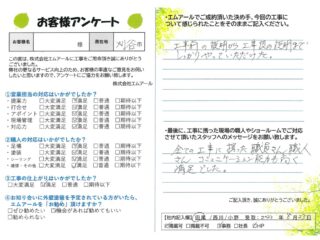 お客様アンケート
お客様名
様
現在地
刈谷市
この度は、株式会社エムアールに工事をご用命頂き誠にありがとうございました。
弊社の更なるサービス向上のため、お客様の率直なご意見をお伺いしたいと思いますので、アンケートにご協力をお願い致します。
株式会社エムアール
①営業担当の対応はいかがでしたか?
・提案力 □大変満足 □満足 □普通 □期待以下
・打合せ □大変満足 □満足 □普通 □期待以下
・アポイント □大変満足 □満足 □普通 □期待以下
・現場管理 □大変満足 □満足 □普通 □期待以下
・対応力 □大変満足 □満足 □普通 □期待以下
②職人の対応はいかがでしたか?
・足場 □大変満足 □満足 □普通 □期待以下
・塗装 □大変満足 □満足 □普通 □期待以下
・シーリング □大変満足 □満足 □普通 □期待以下
・補修・その他 □大変満足 □満足 □普通 □期待以下
③工事の仕上がりはいかがでしたか?
□大変満足 □満足 □普通 □期待以下
④お知り合いに外壁塗装を予定されている方がいたら、エムアールを「お勧め」頂けますか?
□ぜひ勧めたい □機会があれば勧めてもいい
□勧められない
・エムアールでご成約頂いた決め手、今回の工事について感じられたことをそのままご記入ください。
工事前の説明から工事後の説明まで
しっかりやっていただけた。
・最後に、工事に携った現場の職人やショールームでご対応させて頂いたスタッフへのメッセージをお願い致します。
全ての工事に携った職長さん、職人
さん コミュニケーション能力も高く
満足でした。
ご記入頂き、誠にありがとうございました。